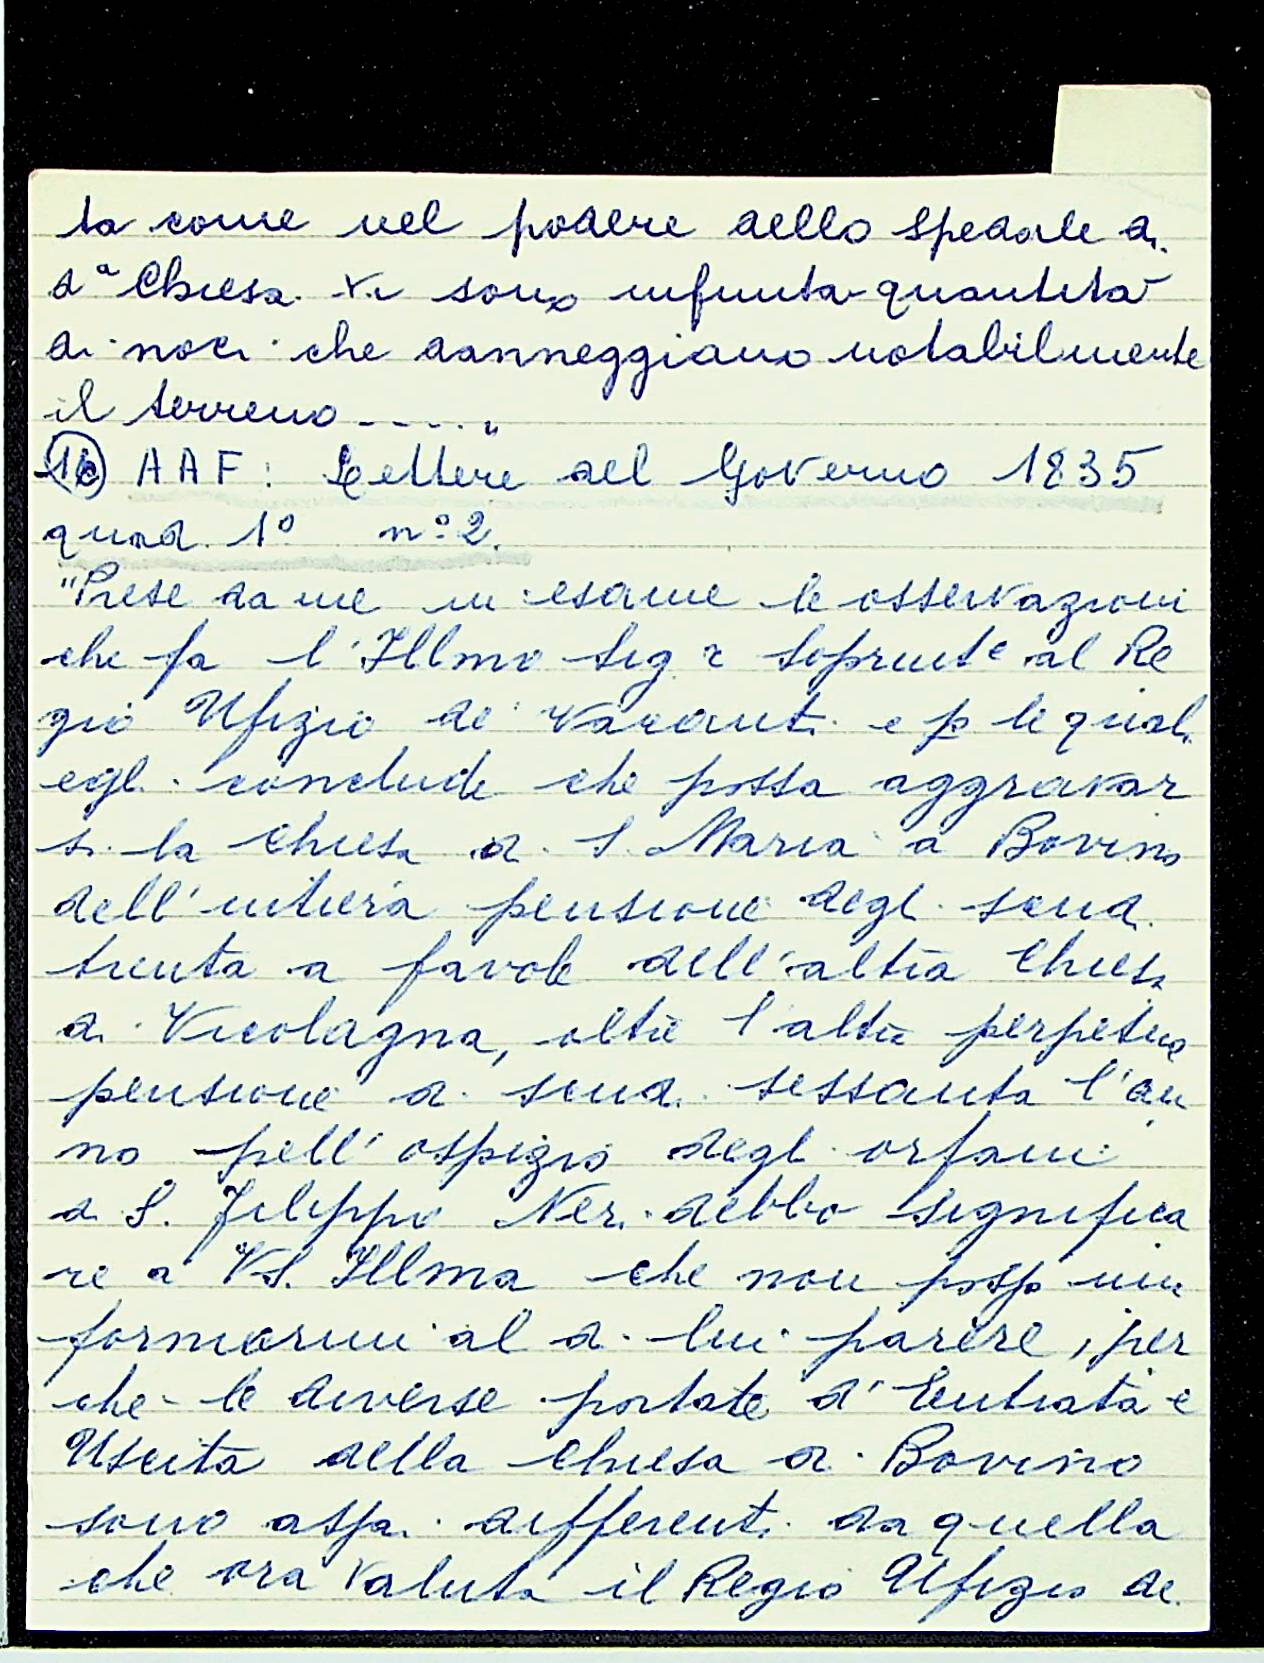 ta come nel podere dello Spedale di
dª Chiesa vi sono infinita quantità
di noci che danneggiano notabilmente
il terreno ....."
AAF: Lettere del Governo 1835
quad. 1º nº 2.
"Prese da me in esame le osservazioni
che fa l'Illmo Sig.r Soprinte al Re
gio Ufizio de' Vacanti e p le quali
egli conclude che possa aggravar
si la Chiesa di S. Maria a Bovino
dell'intiera pensione degli scudi
trenta a favole dell'altra Chiesa
di Vicolagna, oltre l'altra perpetua
pensione di scudi sessanta l'an
no pell'ospizio degli orfani
di S. Filippo Neri debbo significa
re a VS. Illma che non posso uni
formarmi al di lui parere, per
che le diverse portate d'Entrata e
Uscita della Chiesa di Bovino
sono assai differenti da quella
che ora valuta il Regio Ufizio de